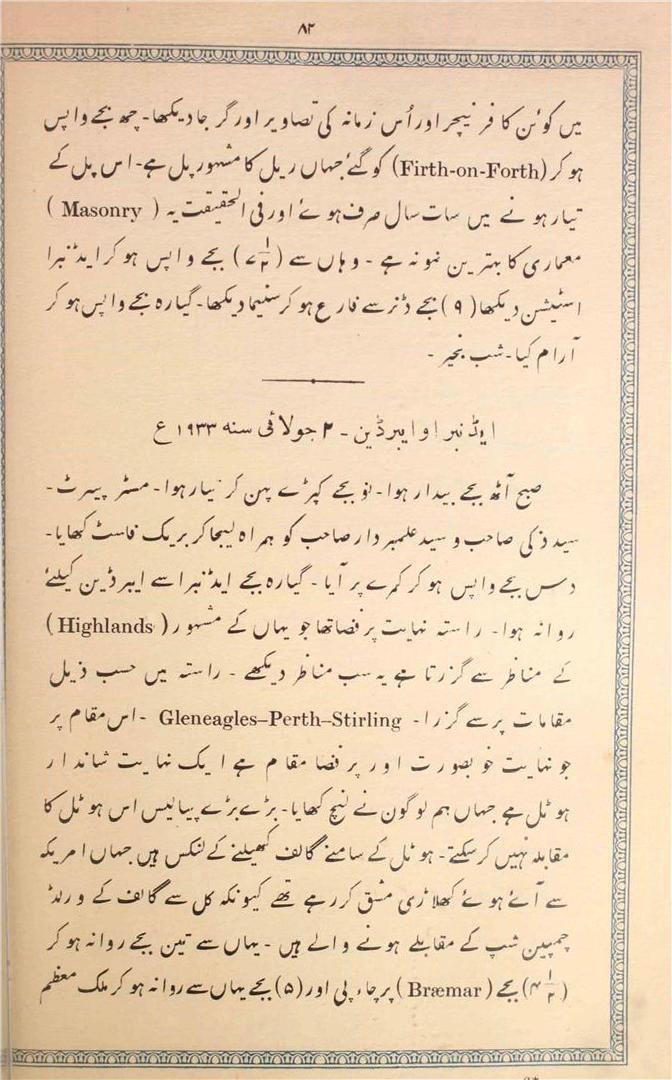 ۸۲
میں کوئن کا فرنیچر اور اُس زمانہ کی تصاویر اور گرجا دیکھا۔ چھ بجے واپس
ہوکر (Firth-on-Forth) کو گئے جہاں ریل کا مشہور پل ہے۔ اس پل کے
تیار ہونے میں سات سال صرف ہوئے اور فی الحقیقت یہ (Masonry)
معماری کا بہترین نمونہ ہے ۔ وہاں سے (۷½) بجے واپس ہوکر ایڈنبرا
اسٹیشن دیکھا (۹) بجے ڈنر سے فارغ ہوکر سنیما دیکھا۔ گیارہ بجے واپس ہوکر
آرام کیا۔ شب بخیر ۔
ایڈنبرا و ایبرڈین ۔ ۲ جولائی سنہ ۱۹۳۳ ع
صبح آٹھ بجے بیدار ہوا۔ نو بجے کپڑے پہن کر تیار ہوا۔ مسٹر پیرٹ۔
سید ذکی صاحب و سید علمبردار صاحب کو ہمراہ لیجاکر بریک فاسٹ کھایا۔
دس بجے واپس ہوکر کمرے پر آیا ۔ گیارہ بجے ایڈنبرا سے ایبرڈین کیلئے
روانہ ہوا۔ راستہ نہایت پرفضا تھا جو یہاں کے مشہور (Highlands)
کے مناظر سے گزرتا ہے یہ سب مناظر دیکھے ۔ راستہ میں حسب ذیل
مقامات پر سے گزرا۔ Gleneagles–Perth–Stirling ۔ اس مقام پر
جو نہایت خوبصورت اور پرفضا مقام ہے ایک نہایت شاندار
ہوٹل ہے جہاں ہم لوگوں نے لنچ کھایا۔ بڑے بڑے پیالیس اس ہوٹل کا
مقابلہ نہیں کرسکتے۔ ہوٹل کے سامنے گالف کھیلنے کے لنکس ہیں جہاں امریکہ
سے آئے ہوئے کھلاڑی مشق کررہے تھے کیونکہ کل سے گالف کے ورلڈ
چمپین شپ کے مقابلے ہونے والے ہیں ۔ یہاں سے تین بجے روانہ ہوکر
(۴½) بجے (Bræmar) پر چاء پی اور (۵) بجے یہاں سے روانہ ہوکر ملک معظم